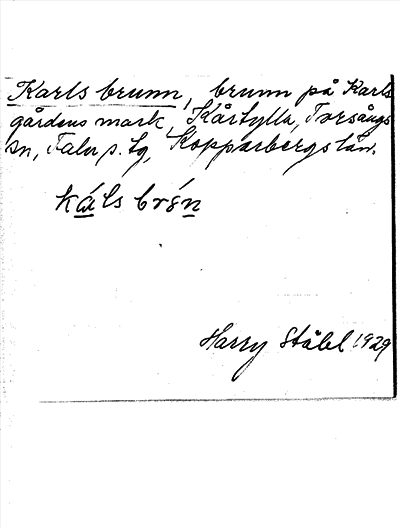 Karls brunn, brunn på Karls
gårdens mark, Kårtylla, Torsångs
sn, Falu s. tg, Kopparbergs län.
káls brén
Harry Ståhl 1929